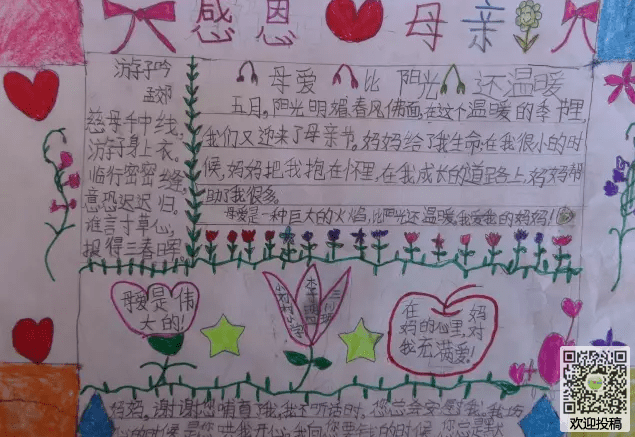 感恩 母亲
游子吟
孟郊
慈母手中线，
游子身上衣。
临行密密缝，
意恐迟迟归。
谁言寸草心，
报得三春晖。
母爱比阳光还温暖
五月，阳光明媚，春风佛面，在这个温暖的季节里，
我们又迎来了母亲节。妈妈给了我生命，在我很小的时
候，妈妈把我抱在怀里，在我成长的道路上，妈妈帮
助了我很多。
母爱是一种巨大的火焰，比阳光还温暖，我爱我的妈妈！
母爱是伟
大的！
在妈
妈的心里，对
我充满爱！
妈妈，谢谢您哺育了我，我不听话时，您总会
的时候，您总是
欢迎投稿